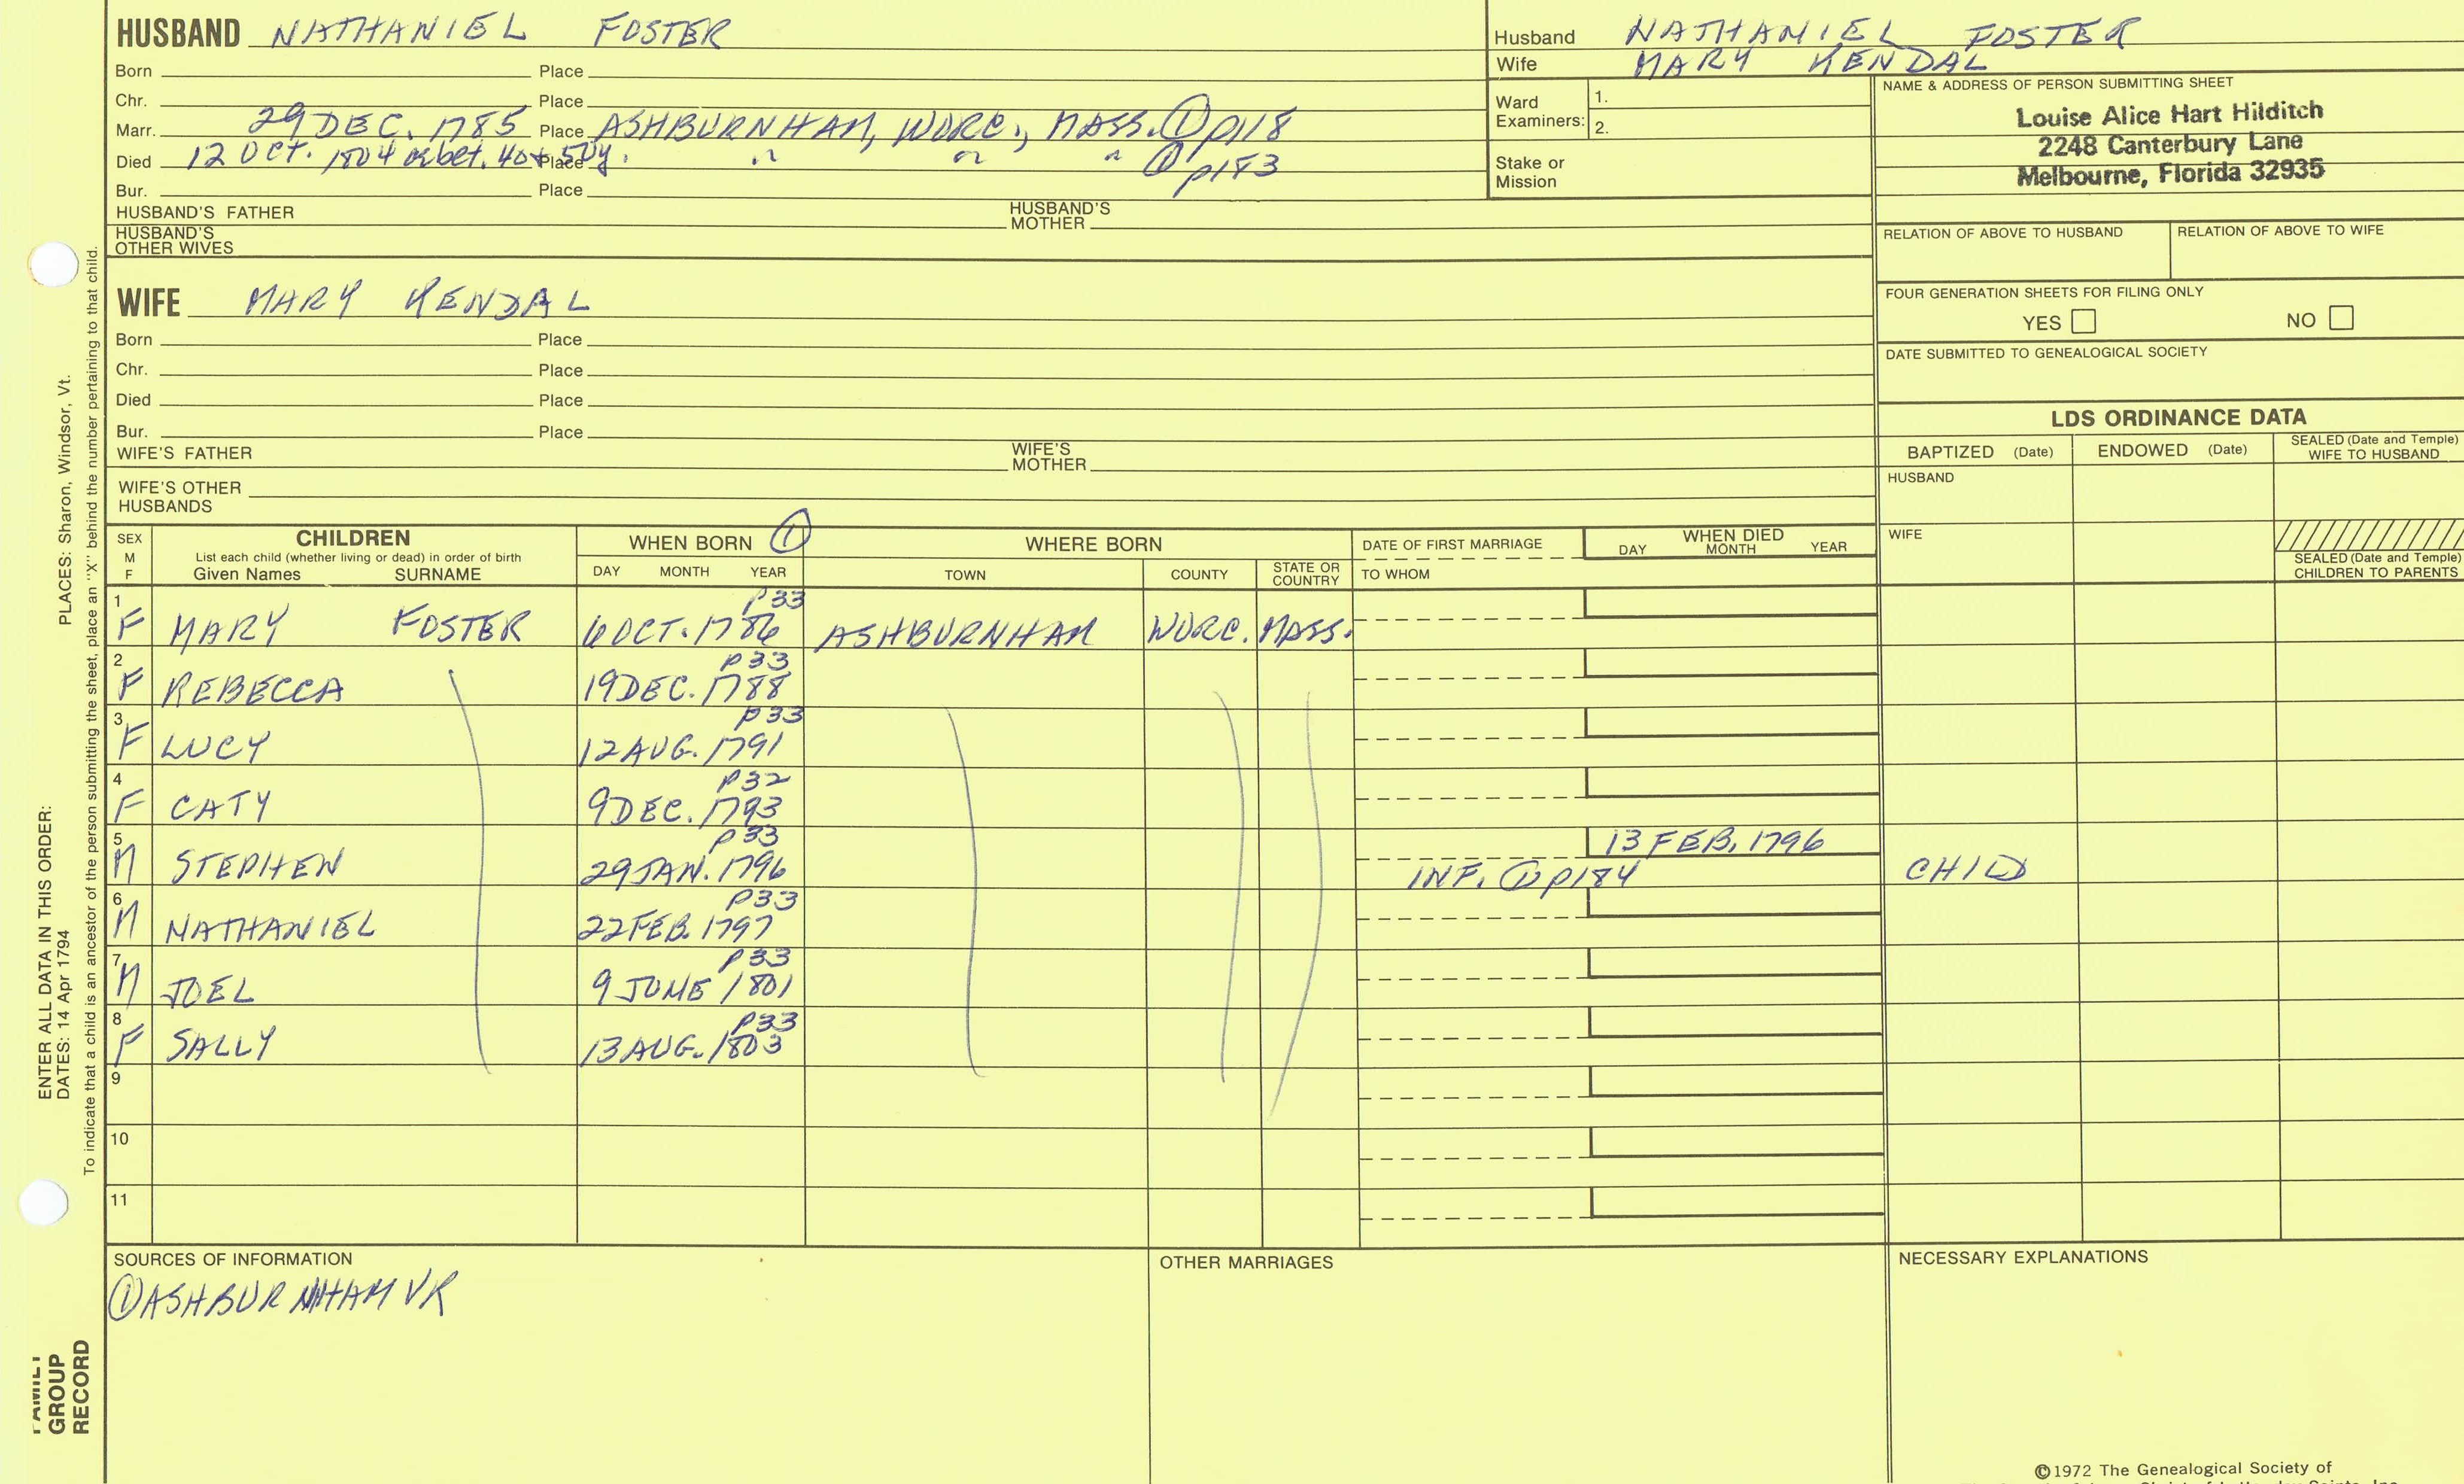 HUSBAND NATHANIEL FOSTER
Born Place
Chr. Place
Marr. 29 DEC. 1785 Place ASHBURNHAM, WORC., MASS. ① p118
Died 12 OCT. 1804 ae bet. 40 & 50y. Place " " " ① p183
Bur. Place
HUSBAND'S FATHER HUSBAND'S MOTHER
HUSBAND'S OTHER WIVES
Husband NATHANIEL FOSTER
Wife MARY KENDAL
Ward Examiners: 1.
2.
Stake or Mission
NAME & ADDRESS OF PERSON SUBMITTING SHEET
Louise Alice Hart Hilditch
2248 Canterbury Lane
Melbourne, Florida 32935
RELATION OF ABOVE TO HUSBAND RELATION OF ABOVE TO WIFE
FOUR GENERATION SHEETS FOR FILING ONLY
YES NO
DATE SUBMITTED TO GENEALOGICAL SOCIETY
WIFE MARY KENDAL
Born Place
Chr. Place
Died Place
Bur. Place
WIFE'S FATHER WIFE'S MOTHER
WIFE'S OTHER HUSBANDS
LDS ORDINANCE DATA
BAPTIZED (Date) ENDOWED (Date) SEALED (Date and Temple) WIFE TO HUSBAND
HUSBAND
WIFE
SEALED (Date and Temple) CHILDREN TO PARENTS
SEX M F
CHILDREN
List each child (whether living or dead) in order of birth
Given Names SURNAME
WHEN BORN ①
DAY MONTH YEAR
WHERE BORN
TOWN COUNTY STATE OR COUNTRY
DATE OF FIRST MARRIAGE
TO WHOM
WHEN DIED
DAY MONTH YEAR
1 F MARY FOSTER 6 OCT. 1786 p33 ASHBURNHAM WORC. MASS.
2 F REBECCA 19 DEC. 1788 p33
3 F LUCY 12 AUG. 1791 p33
4 F CATY 9 DEC. 1793 p32
5 M STEPHEN 29 JAN. 1796 p33 13 FEB. 1796 INF. ① p184 CHILD
6 M NATHANIEL 22 FEB. 1797 p33
7 M JOEL 9 JUNE 1801 p33
8 F SALLY 13 AUG. 1803 p33
9
10
11
SOURCES OF INFORMATION
① ASHBURNHAM VR
OTHER MARRIAGES
NECESSARY EXPLANATIONS
©1972 The Genealogical Society of
ENTER ALL DATA IN THIS ORDER:
DATES: 14 Apr 1794
PLACES: Sharon, Windsor, Vt.
To indicate that a child is an ancestor of the person submitting the sheet, place an "X" behind the number pertaining to that child.
FAMILY
GROUP
RECORD